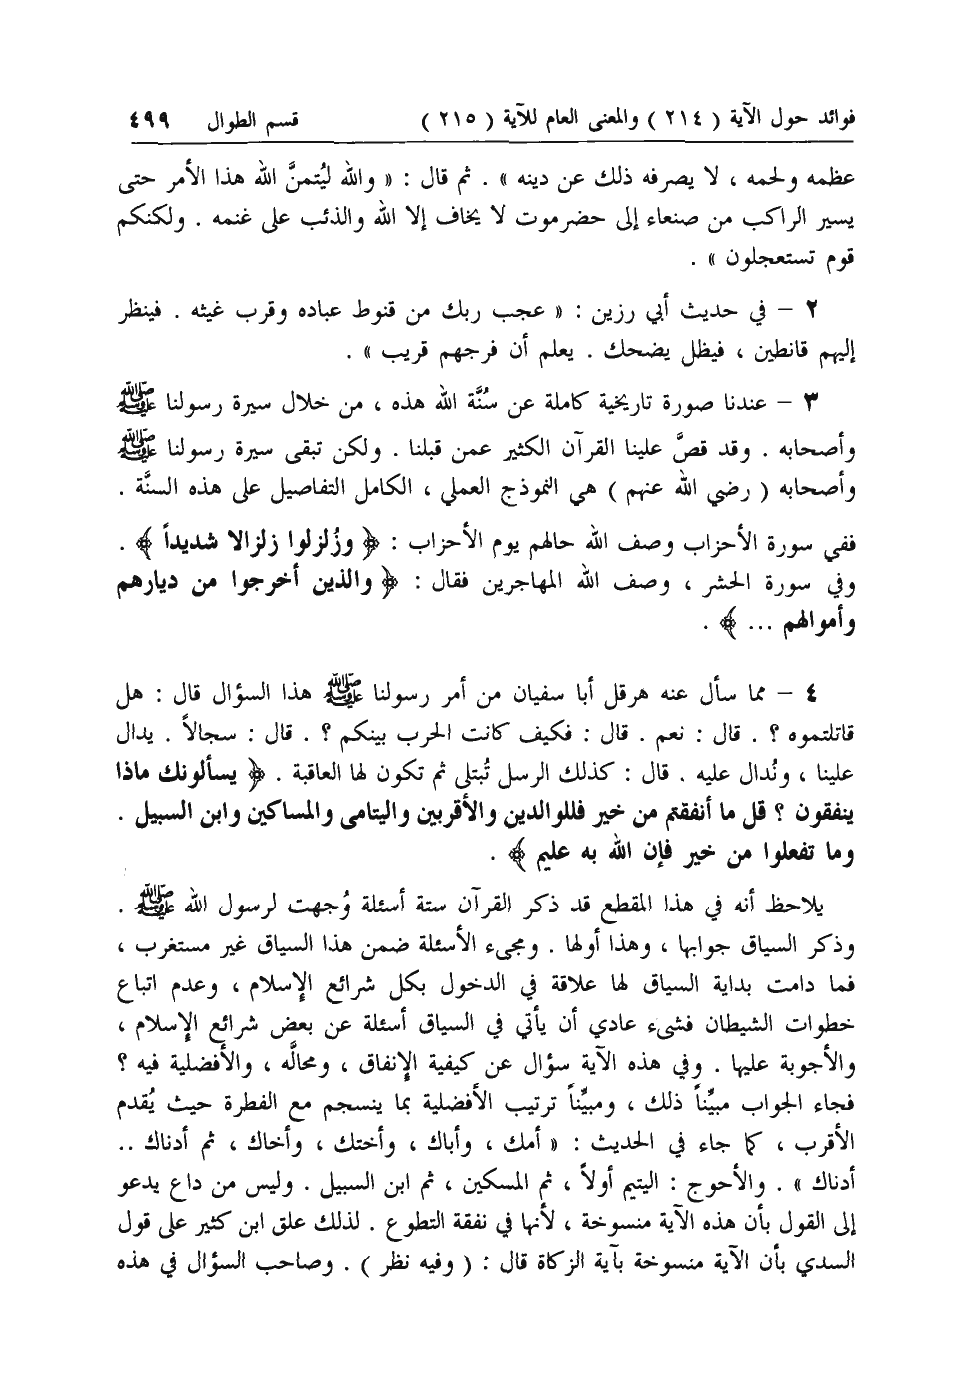 فوائد حول الآية ( ٢١٤ ) والمعنى العام للآية ( ٢١٥ ) قسم الطوال ٤٩٩
عظمه ولحمه ، لا يصرفه ذلك عن دينه » . ثم قال : « والله ليُتمنَّ الله هذا الأمر حتى
يسير الراكب من صنعاء إلى حضرموت لا يخاف إلا الله والذئب على غنمه . ولكنكم
قوم تستعجلون » .
٢ – في حديث أبي رزين : « عجب ربك من قنوط عباده وقرب غيثه . فينظر
إليهم قانطين ، فيظل يضحك . يعلم أن فرجهم قريب » .
٣ – عندنا صورة تاريخية كاملة عن سُنَّة الله هذه ، من خلال سيرة رسولنا ﷺ
وأصحابه . وقد قصَّ علينا القرآن الكثير عمن قبلنا . ولكن تبقى سيرة رسولنا ﷺ
وأصحابه ( رضي الله عنهم ) هي النموذج العملي ، الكامل التفاصيل على هذه السنَّة .
ففي سورة الأحزاب وصف الله حالهم يوم الأحزاب : ﴿ وزُلزلوا زلزالا شديداً ﴾ .
وفي سورة الحشر ، وصف الله المهاجرين فقال : ﴿ والذين أخرجوا من ديارهم
وأموالهم ... ﴾ .
٤ – مما سأل عنه هرقل أبا سفيان من أمر رسولنا ﷺ هذا السؤال قال : هل
قاتلتموه ؟ . قال : نعم . قال : فكيف كانت الحرب بينكم ؟ . قال : سجالاً . يدال
علينا ، ونُدال عليه . قال : كذلك الرسل تُبتلى ثم تكون لها العاقبة . ﴿ يسألونك ماذا
ينفقون ؟ قل ما أنفقتم من خير فللوالدين والأقربين واليتامى والمساكين وابن السبيل .
وما تفعلوا من خير فإن الله به عليم ﴾ .
يلاحظ أنه في هذا المقطع قد ذكر القرآن ستة أسئلة وُجهت لرسول الله ﷺ .
وذكر السياق جوابها ، وهذا أولها . ومجيء الأسئلة ضمن هذا السياق غير مستغرب ،
فما دامت بداية السياق لها علاقة في الدخول بكل شرائع الإسلام ، وعدم اتباع
خطوات الشيطان فشيء عادي أن يأتي في السياق أسئلة عن بعض شرائع الإسلام ،
والأجوبة عليها . وفي هذه الآية سؤال عن كيفية الإنفاق ، ومحالَّه ، والأفضلية فيه ؟
فجاء الجواب مبيِّناً ذلك ، ومبيِّناً ترتيب الأفضلية بما ينسجم مع الفطرة حيث يُقدم
الأقرب ، كما جاء في الحديث : « أمك ، وأباك ، وأختك ، وأخاك ، ثم أدناك ..
أدناك » . والأحوج : اليتيم أولاً ، ثم المسكين ، ثم ابن السبيل . وليس من داع يدعو
إلى القول بأن هذه الآية منسوخة ، لأنها في نفقة التطوع . لذلك علق ابن كثير على قول
السدي بأن الآية منسوخة بآية الزكاة قال : ( وفيه نظر ) . وصاحب السؤال في هذه